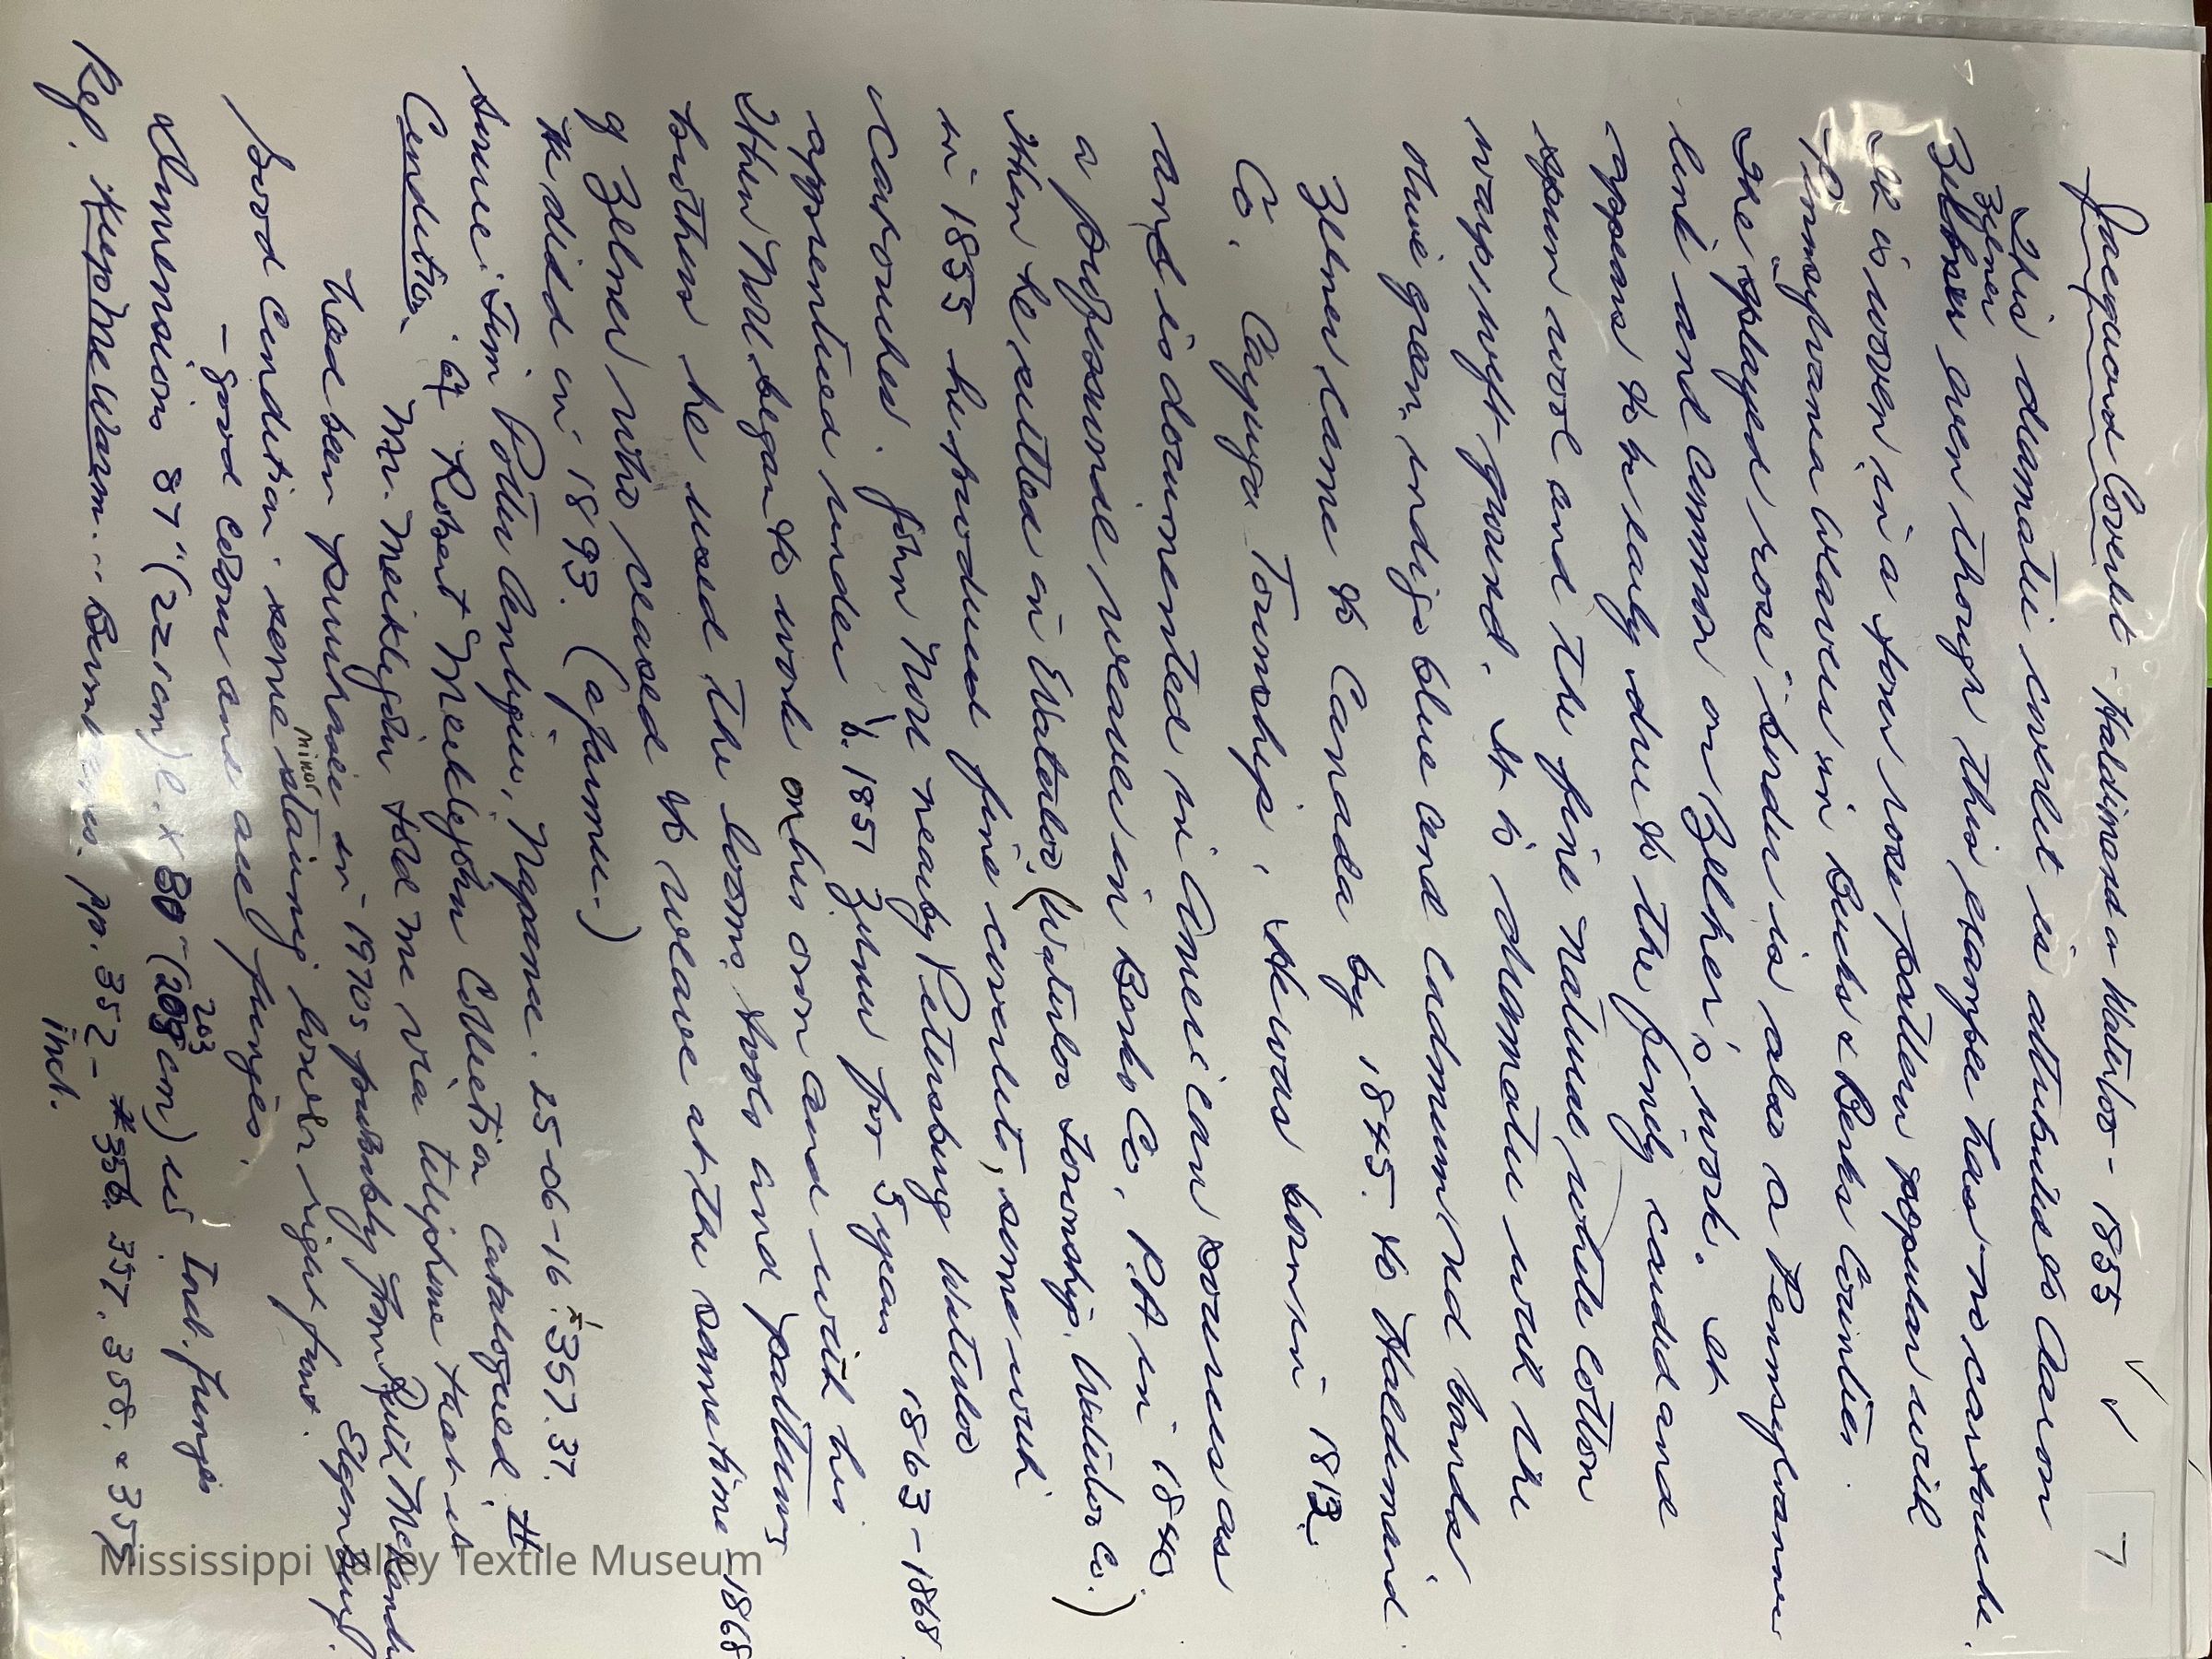 Jacquard Coverlet - Haldimand or Waterloo - 1855 ✓ ✓
7
This dramatic coverlet is attributed to Aaron
Zelner
Zelner even though this example has no cartouche.
It is woven in a four rose pattern popular with
Pennsylvania weavers in Bucks & Berks Counties.
The splayed rose border is also a Pennsylvania
link and common on Zelner's work. It
appears to be early due to the finely carded and
spun wool and the fine natural white cotton
warp, weft ground. It is dramatic with the
olive green, indigo blue and cadmium red bands.
Zelner came to Canada by 1845 to Haldimand
Co. Cayuga Township. He was born in 1812.
and is documented in American sources as
a professional weaver in Berks Co, PA in 1840
When he settled in Waterloo, (Waterloo Township, Waterloo Co.)
in 1855 he produced fine coverlets, some with
cartouches. John Noll nearby Petersburg Waterloo
apprenticed under b. 1851 Zelner for 5 years 1863-1868.
When Noll began to work on his own and with his
brother he used the looms, tools and patterns
of Zelner who ceased to weave at the same time 1868
He died in 1893. (a farmer)
Source: Jim Potter Antiques, Napanee. 25-06-16. * 357.37.
Condition. Ex Robert Meiklejohn Collection catalogued #
Mr. Meiklejohn told me via telephone that it
had been purchased in 1970s probably from Ruth McKendry
Elginburg.
Good condition. some minor staining lower right front.
- good colour and all fringes.
Dimensions 87" (221 cm) l. x 80" (203 cm) w Incl. fringes
203
Ref. Keep Me Warm... Burnham. pp. 352- 356. 357. 358. 355
incl.
Mississippi Valley Textile Museum